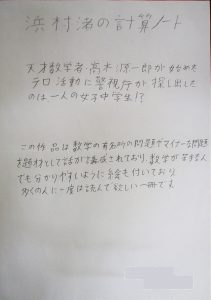 浜村渚の計算ノート
天才数学者・高木源一郎が始めた
テロ活動に警視庁が探し出した
のは一人の女子中学生!?
この作品は数学の有名所の問題やマイナーな問題
を題材として話が構成されており、数学が苦手な人
でも分かりやすいように絵も付いており
多くの人に一度は読んで欲しい一冊です